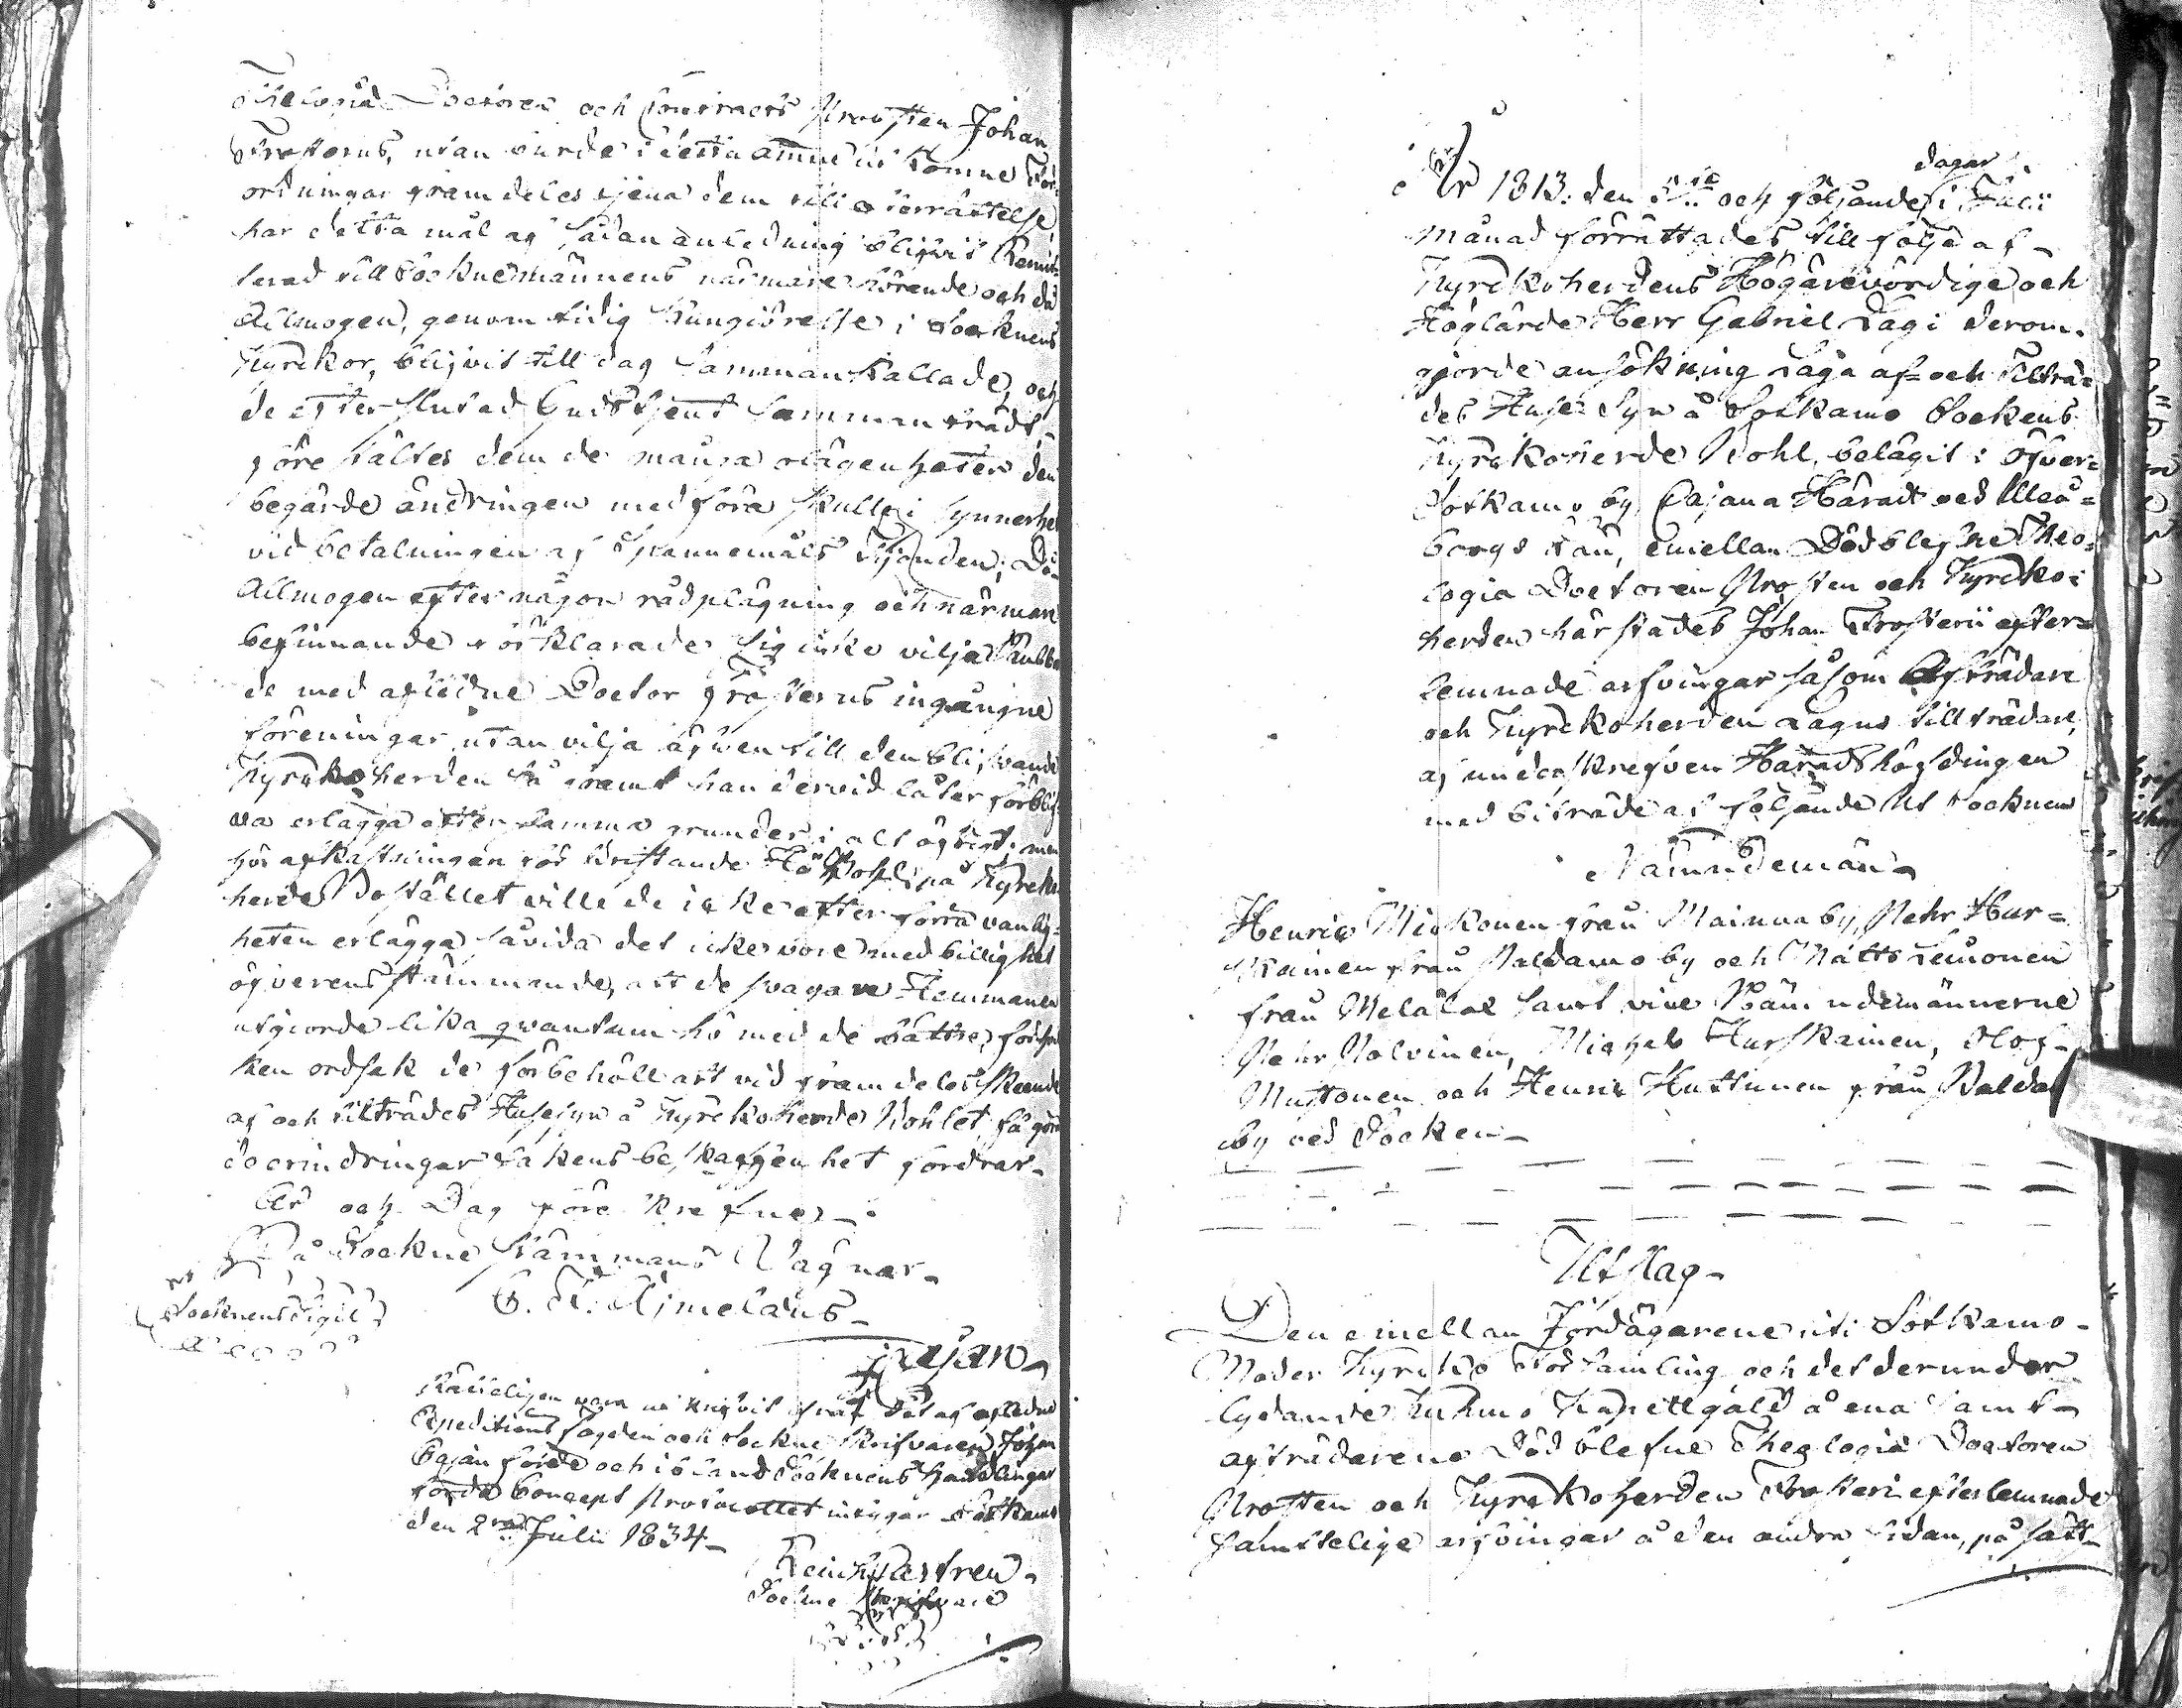 Theologiæ Doctoren och Contracts Prosten Johan
Frosterus, utan borde i detta ämne ut komne För-
ordningar framdeles tjena dem till efterrättelse,
har detta mål af sådan anledning blifvit Remit-
terad till Socknemännens närmare hörande och då
Allmogen, genom tidig kungiörelse i Socknens
Kyrckor, blifvit till dag sammankallade, och
de efter slutad Gudstjenst sammanträdt,
före hältes dem de många olägenheter den
begärde ändringen medföra skulle i synnerhet
vid betalningen af Spannemåls Tijonden; Då
Allmogen efter någon rådplägning och närmare
besinnande förklarade sig icke vilja rubba
de med afledne Doctor Frosterus ingångne
föreningar utan vilja äfwen till den blifvande
Kyrckoherden så framt han dervid låter förblif-
va erlägga efter samma grunder i alt öfrigt; men
hö afkastningen för bristande Hö Bohl på Kyrcko
herde Bostället ville de icke efter förra vanlig-
heten erlägga såvida det icke vore med billighet
öfverensstämmande, att de svagare Hemmanen
utgiorde lika qvantum hö med de bättre, för hvil-
ken ordsak de förbehöllo att vid framdeles skeende
af och tillträdes Husesyn å Kyrckoherde Bohlet få göra
de erindringar sakens beskaffenhet fordrar.
År och Dag före skrefne.
På Sockne Stämmans Vägnar.
G. F. Ajmelæus
Socknens Sigil
Cajan
Expeditions fogden och Sockne Skrifvaren Johan
Cajan förde och ibland Socknens handlingar
Concept Protocollet intygar Sotkamo
den 2 Juli 1834
Castren
Sockne Skrifvare
dagar
År 1813. den 5te och följande i Julii
månad förrättades, till följe af
Kyrckoherdens Högärevördige och
Höglärde Herr Gabriel Lagi derom
gjorde ansökning Laga af- och Tillträ-
des Huse Syn å Sotkamo Sockens
Kyrckoherde Bohl, belägit i Öfver
Sotkamo by Cajana Härad och Uleå-
borgs Län, emellan Dödblefne Theo-
logiæ Doctoren Prosten och Kyrcko-
herden härstädes Johan Frosterii efter-
lemnade arfvingar såsom Afträdare
och Kyrckoherden Lagus tillträdare,
af underskrefven Häradshöfdingen
med biträde af följande Ut Socknens
Nämndemän
Henric Mickonen från Mainua by, Pehr Hur-
skainen från Paldamo by och Matts Leinonen
från Melalax samt vice Nämndemännerne
Pehr Polvinen, Michel Hurskainen, Olof
Mustonen och Henric Huttunen från Paldamo
by och Socken
Utslag
Den emellan Jordägarene uti Sotkamo
Moder Kyrcko Församling och det derunder
lydande Kuhmo Kapellgäld å ena samt
afträdarene Dödblefne Theologiæ Doctoren
Prosten och Kyrckoherden Frosterii efterlemnade
samtelige arfvingar å den andra sidan, på sätt